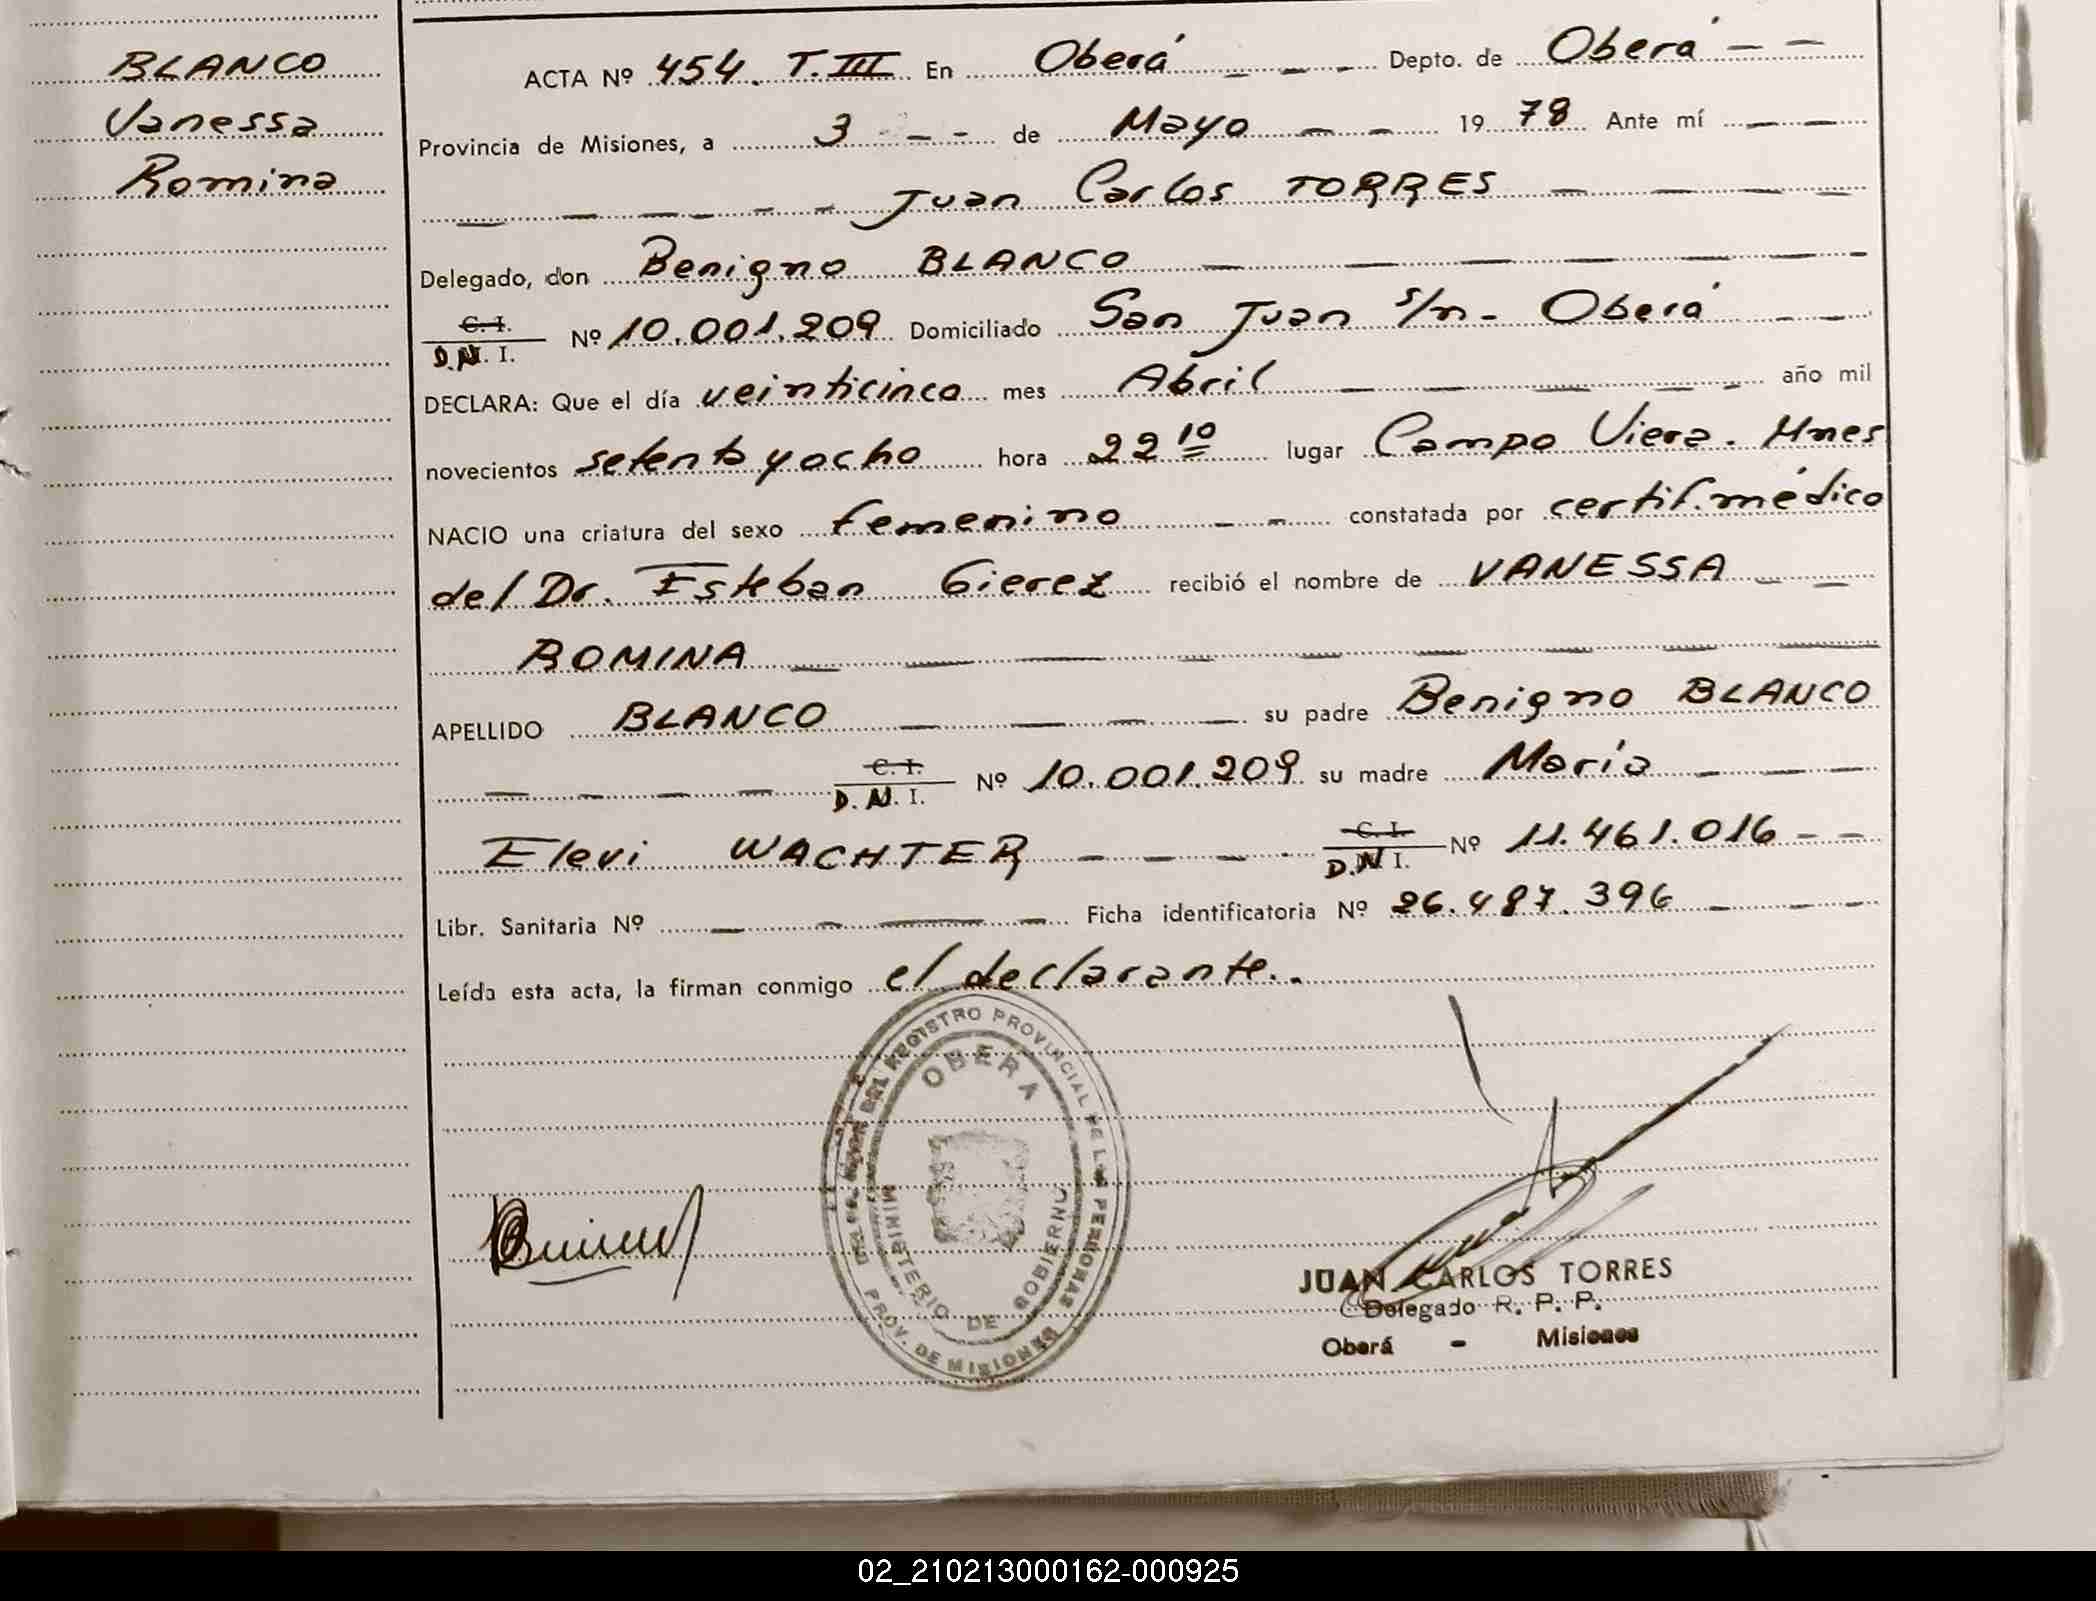 BLANCO
Vanessa
Romina
ACTA Nº 454. T. III En Oberá Depto. de Oberá
Provincia de Misiones, a 3 de Mayo 1978 Ante mí
Juan Carlos TORRES
Delegado, don Benigno BLANCO
C. I.
D. N. I. Nº 10.001.209 Domiciliado San Juan s/n - Oberá
DECLARA: Que el día veinticinco mes Abril año mil
novecientos setenta y ocho hora 22 10 lugar Campo Viera. Mnes
NACIO una criatura del sexo femenino constatada por certif. médico
del Dr. Esteban Gierez recibió el nombre de VANESSA
ROMINA
APELLIDO BLANCO su padre Benigno BLANCO
C. I.
D. N. I. Nº 10.001.209 su madre María
Elevi WACHTER C. I.
D. N. I. Nº 11.461.016
Libr. Sanitaria Nº Ficha identificatoria Nº 26.487.396
Leída esta acta, la firman conmigo el declarante.
DEL REGISTRO PROVINCIAL DE LAS PERSONAS
OBERA
MINISTERIO DE GOBIERNO
PROV. DE MISIONES
JUAN CARLOS TORRES
Delegado R. P. P.
Oberá - Misiones
02_210213000162-000925